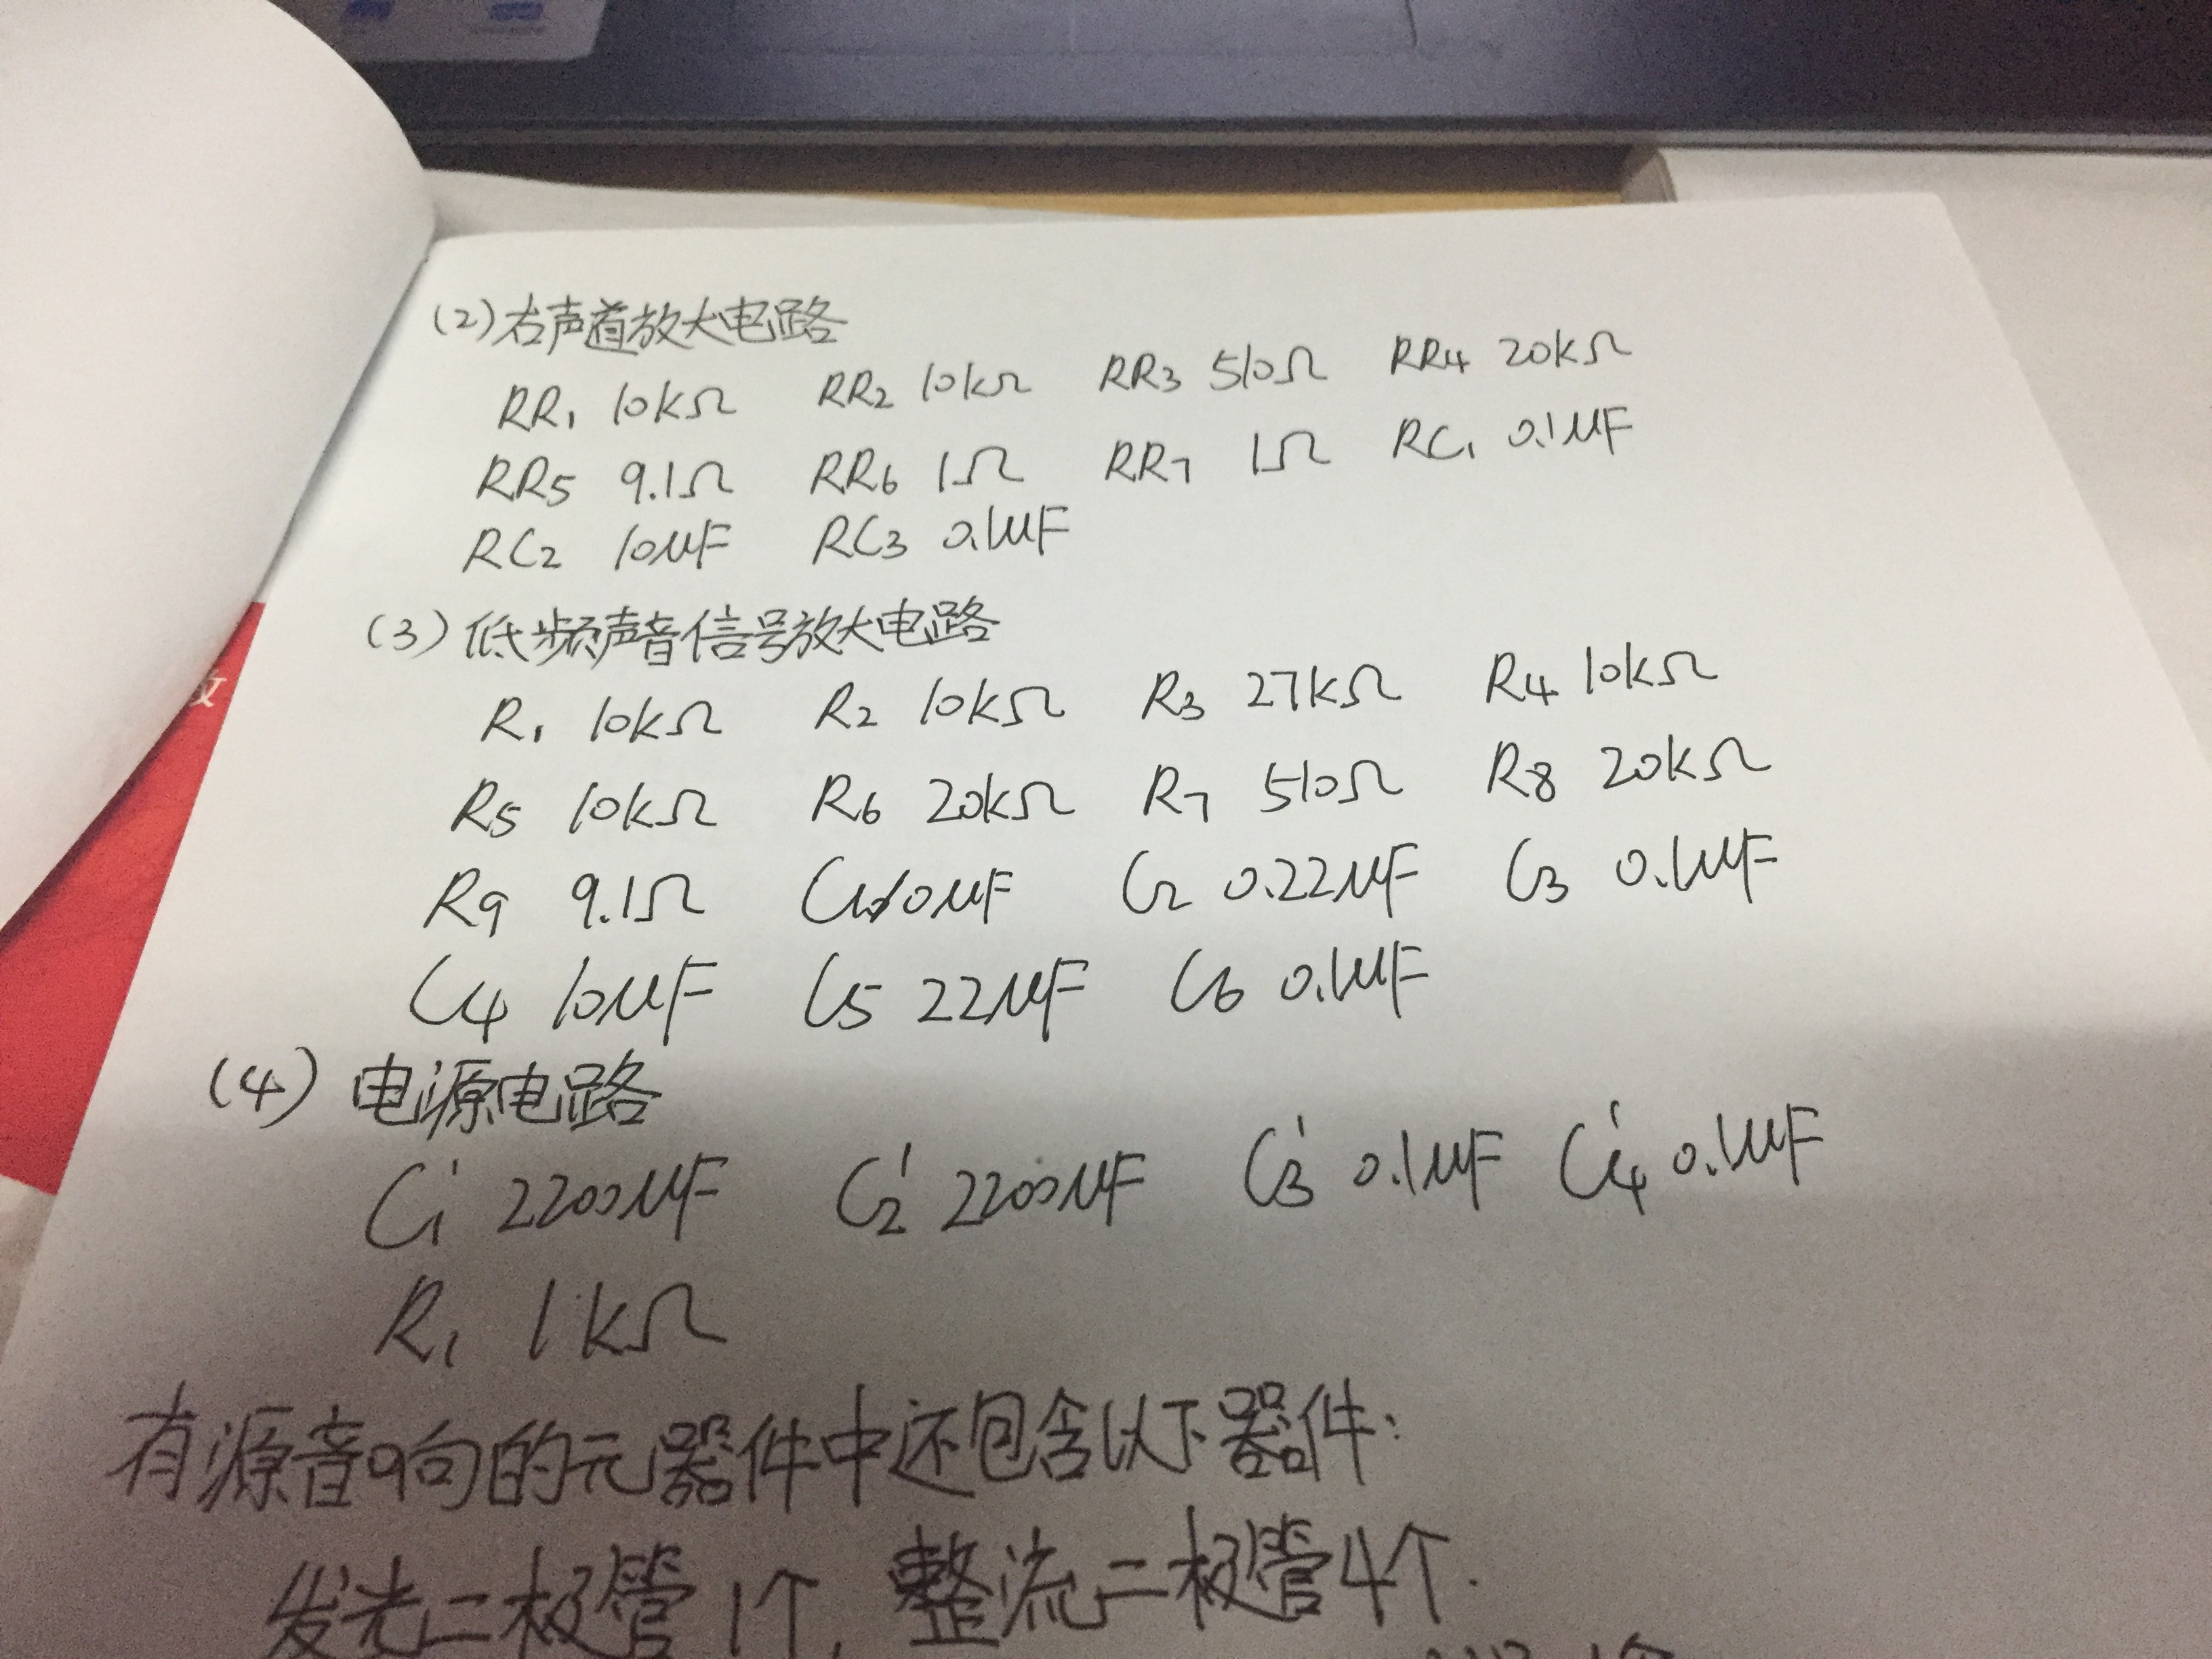 (2)右声道放大电路
RR1 10kΩ RR2 10kΩ RR3 510Ω RR4 20kΩ
RR5 9.1Ω RR6 1Ω RR7 1Ω RC1 0.1μF
RC2 10μF RC3 0.1μF
(3)低频声音信号放大电路
R1 10kΩ R2 10kΩ R3 27kΩ R4 10kΩ
R5 10kΩ R6 20kΩ R7 510Ω R8 20kΩ
R9 9.1Ω C1 10μF C2 0.22μF C3 0.1μF
C4 10μF C5 22μF C6 0.1μF
(4)电源电路
C1' 2200μF C2' 2200μF C3' 0.1μF C4' 0.1μF
R1 1kΩ
有源音响的元器件中还包含以下器件:
发光二极管1个,整流二极管4个.